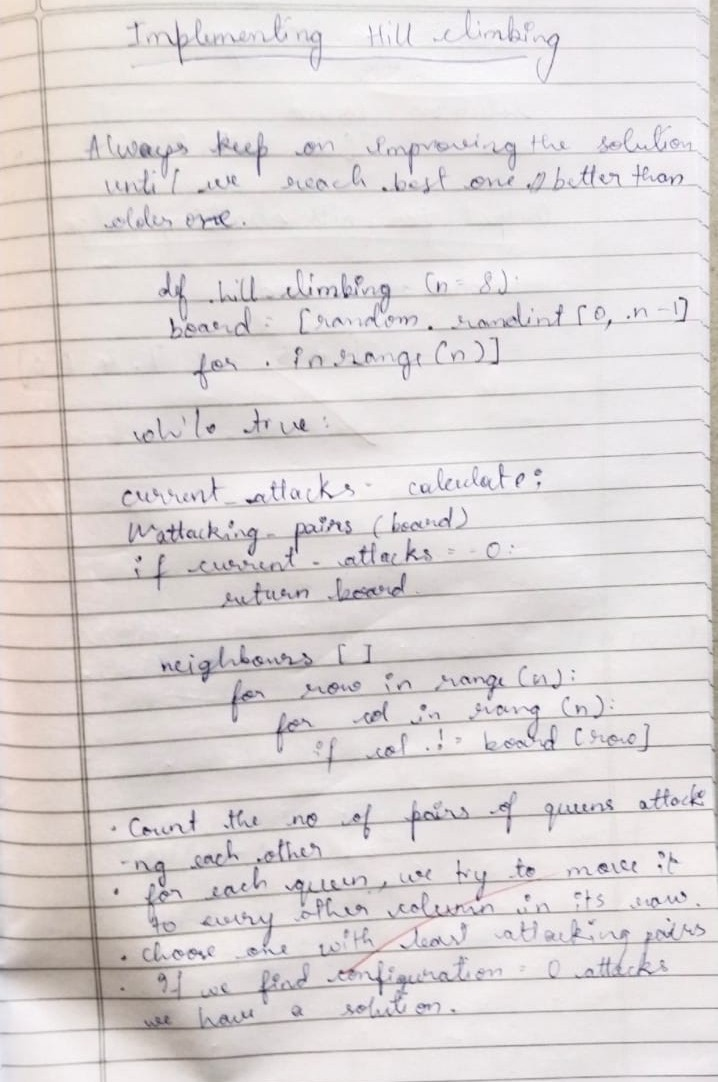 Implementing Hill climbing
Always keep on improving the solution
until we reach best one // better than
older one.
def hill-climbing (n = 8):
board = [random. randint [0, n-1]
for . in range (n)]
while true:
current_attacks = calculate;
attacking- pairs (board)
if current - attacks = = 0:
return board
neighbours [ ]
for row in range (n):
for col in rang (n):
if col != board [row]
• Count the no of pairs of queens attack
-ng each other
• for each queen, we try to move it
to every other column in its row.
• choose one with least attacking pairs
• If we find configuration = 0 attacks
we have a solution.